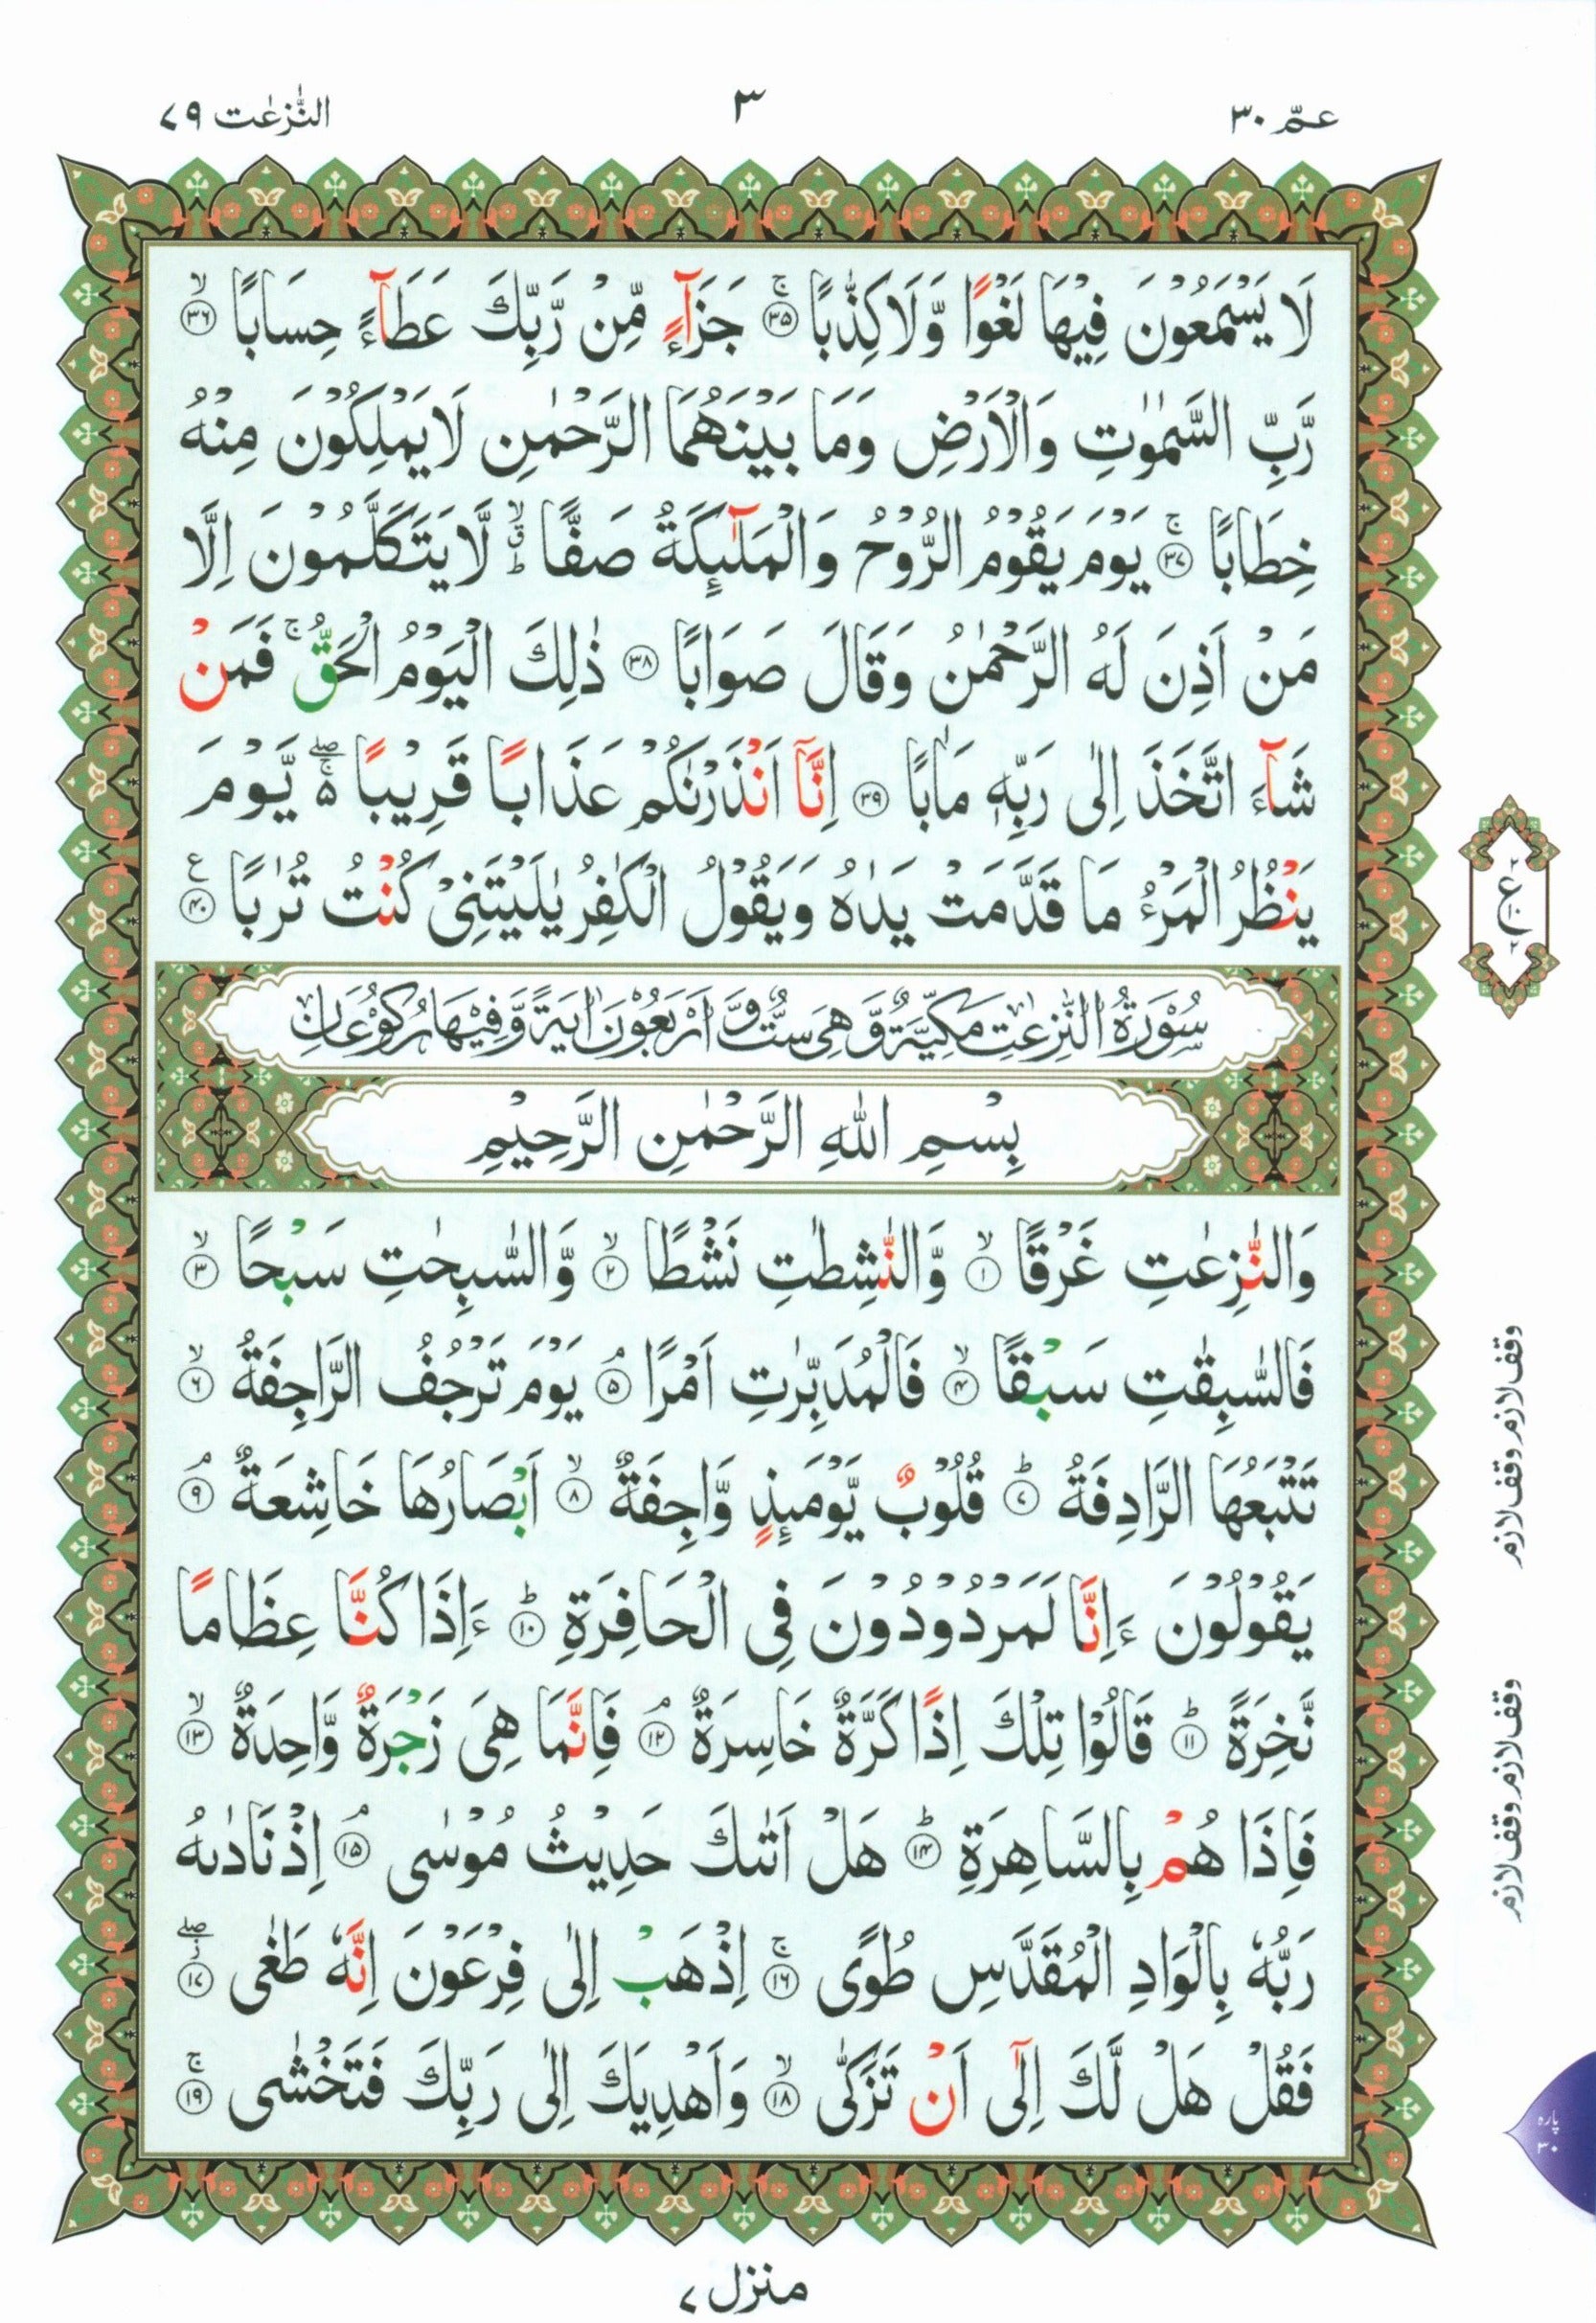 عمّ ٣٠
٣
النّٰزعٰت ٧٩
لَا يَسْمَعُوْنَ فِيْهَا لَغْوًا وَّلَا كِذّٰبًا ۚ﴿۳۵﴾ جَزَآءً مِّنْ رَّبِّكَ عَطَآءً حِسَابًا ۙ﴿۳۶﴾
رَّبِّ السَّمٰوٰتِ وَالْاَرْضِ وَمَا بَيْنَهُمَا الرَّحْمٰنِ لَا يَمْلِكُوْنَ مِنْهُ
خِطَابًا ۚ﴿۳۷﴾ يَوْمَ يَقُوْمُ الرُّوْحُ وَالْمَلٰٓئِكَةُ صَفًّا ۙ ؕ لَّا يَتَكَلَّمُوْنَ اِلَّا
مَنْ اَذِنَ لَهُ الرَّحْمٰنُ وَقَالَ صَوَابًا ﴿۳۸﴾ ذٰلِكَ الْيَوْمُ الْحَقُّ ۚ فَمَنْ
شَآءَ اتَّخَذَ اِلٰى رَبِّهٖ مَاٰبًا ﴿۳۹﴾ اِنَّآ اَنْذَرْنٰكُمْ عَذَابًا قَرِيْبًا ۚۖ۬ يَّوْمَ
يَنْظُرُ الْمَرْءُ مَا قَدَّمَتْ يَدٰهُ وَيَقُوْلُ الْكٰفِرُ يٰلَيْتَنِيْ كُنْتُ تُرٰبًا ﴿۴۰﴾ ع
سُوْرَةُ النّٰزِعٰتِ مَكِّيَّةٌ وَّهِىَ سِتٌّ وَّاَرْبَعُوْنَ اٰيَةً وَّفِيْهَا رُكُوْعَانِ
بِسْمِ اللّٰهِ الرَّحْمٰنِ الرَّحِيْمِ
وَالنّٰزِعٰتِ غَرْقًا ۙ﴿۱﴾ وَّالنّٰشِطٰتِ نَشْطًا ۙ﴿۲﴾ وَّالسّٰبِحٰتِ سَبْحًا ۙ﴿۳﴾
فَالسّٰبِقٰتِ سَبْقًا ۙ﴿۴﴾ فَالْمُدَبِّرٰتِ اَمْرًا ۘ﴿۵﴾ يَوْمَ تَرْجُفُ الرَّاجِفَةُ ۙ﴿۶﴾
تَتْبَعُهَا الرَّادِفَةُ ؕ﴿۷﴾ قُلُوْبٌ يَّوْمَئِذٍ وَّاجِفَةٌ ۙ﴿۸﴾ اَبْصَارُهَا خَاشِعَةٌ ۘ﴿۹﴾
يَقُوْلُوْنَ ءَاِنَّا لَمَرْدُوْدُوْنَ فِى الْحَافِرَةِ ؕ﴿۱۰﴾ ءَاِذَا كُنَّا عِظَامًا
نَّخِرَةً ؕ﴿۱۱﴾ قَالُوْا تِلْكَ اِذًا كَرَّةٌ خَاسِرَةٌ ۘ﴿۱۲﴾ فَاِنَّمَا هِىَ زَجْرَةٌ وَّاحِدَةٌ ۙ﴿۱۳﴾
فَاِذَا هُمْ بِالسَّاهِرَةِ ؕ﴿۱۴﴾ هَلْ اَتٰىكَ حَدِيْثُ مُوْسٰى ۘ﴿۱۵﴾ اِذْ نَادٰىهُ
رَبُّهٗ بِالْوَادِ الْمُقَدَّسِ طُوًى ۚ﴿۱۶﴾ اِذْهَبْ اِلٰى فِرْعَوْنَ اِنَّهٗ طَغٰى ۖ﴿۱۷﴾
فَقُلْ هَلْ لَّكَ اِلٰٓى اَنْ تَزَكّٰى ۙ﴿۱۸﴾ وَاَهْدِيَكَ اِلٰى رَبِّكَ فَتَخْشٰى ۚ﴿۱۹﴾
ع
وقف لازم وقف لازم
وقف لازم وقف لازم
پارہ
٣٠
منزل ٧